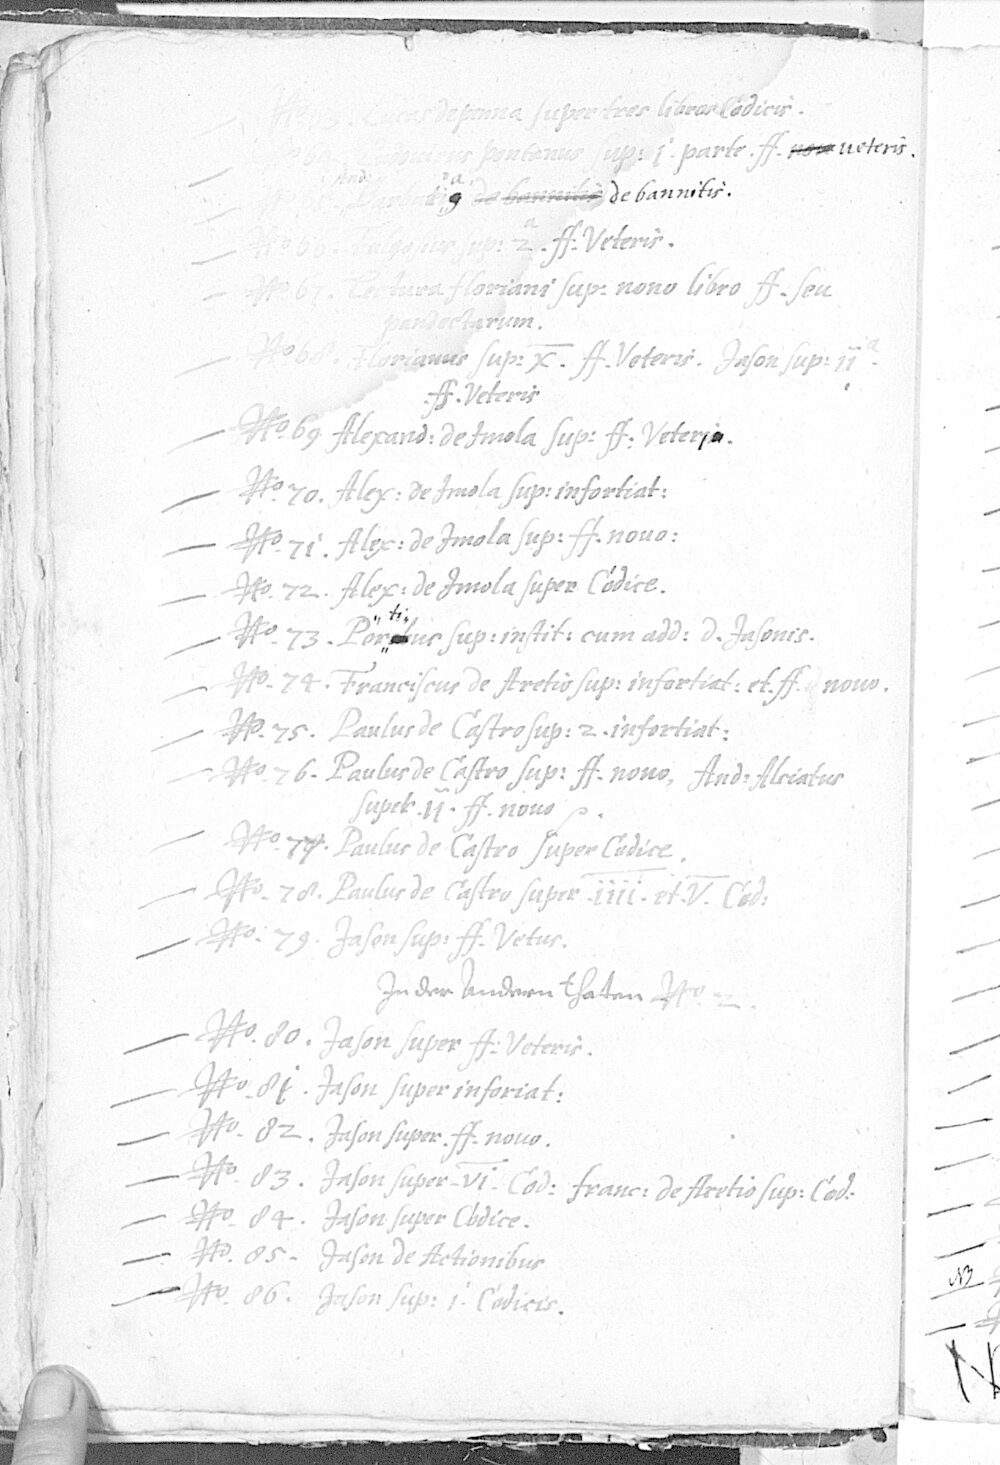 No 63. Lucas de penna super tres libros Codicis.
No 64. Ludouicus pontanus sup: i. parte. ff. nou ueteris.
And: Barbatia de bannitis de bannitis.
No 66. sup: 2.a ff. Veteris.
No 67. Lectura floriani sup: nono libro ff. seu
pandectarum.
No 68. Florianus sup: X. ff. Veteris. Jason sup: ii.a
ff. Veteris
No 69 Alexand: de Jmola sup: ff. Veteris.
No 70. Alex: de Jmola sup: infortiat:
No 71. Alex: de Jmola sup: ff. nouo:
No 72. Alex: de Jmola super Codice.
No 73. Portius sup: instit: cum add: d. Jasonis.
No 74. Franciscus de Aretio sup: infortiat: et. ff. nouo.
No 75. Paulus de Castro sup: 2. infortiat:
No 76. Paulus de Castro sup: ff. nouo, And: Alciatus
super ii. ff. nouo
No 77. Paulus de Castro super Codice.
No 78. Paulus de Castro super iiii. et. V. Cod:
No 79. Jason sup: ff. Vetus.
In der Anderen thaten No 2.
No 80. Jason super ff. Veteris.
No 81. Jason super inforiat:
No 82. Jason super. ff. nouo.
No 83. Jason super vi Cod: franc: de Aretio sup: Cod:
No 84. Jason super Codice.
No 85. Jason de Actionibus
No 86. Jason sup: i. Codicis.
NB